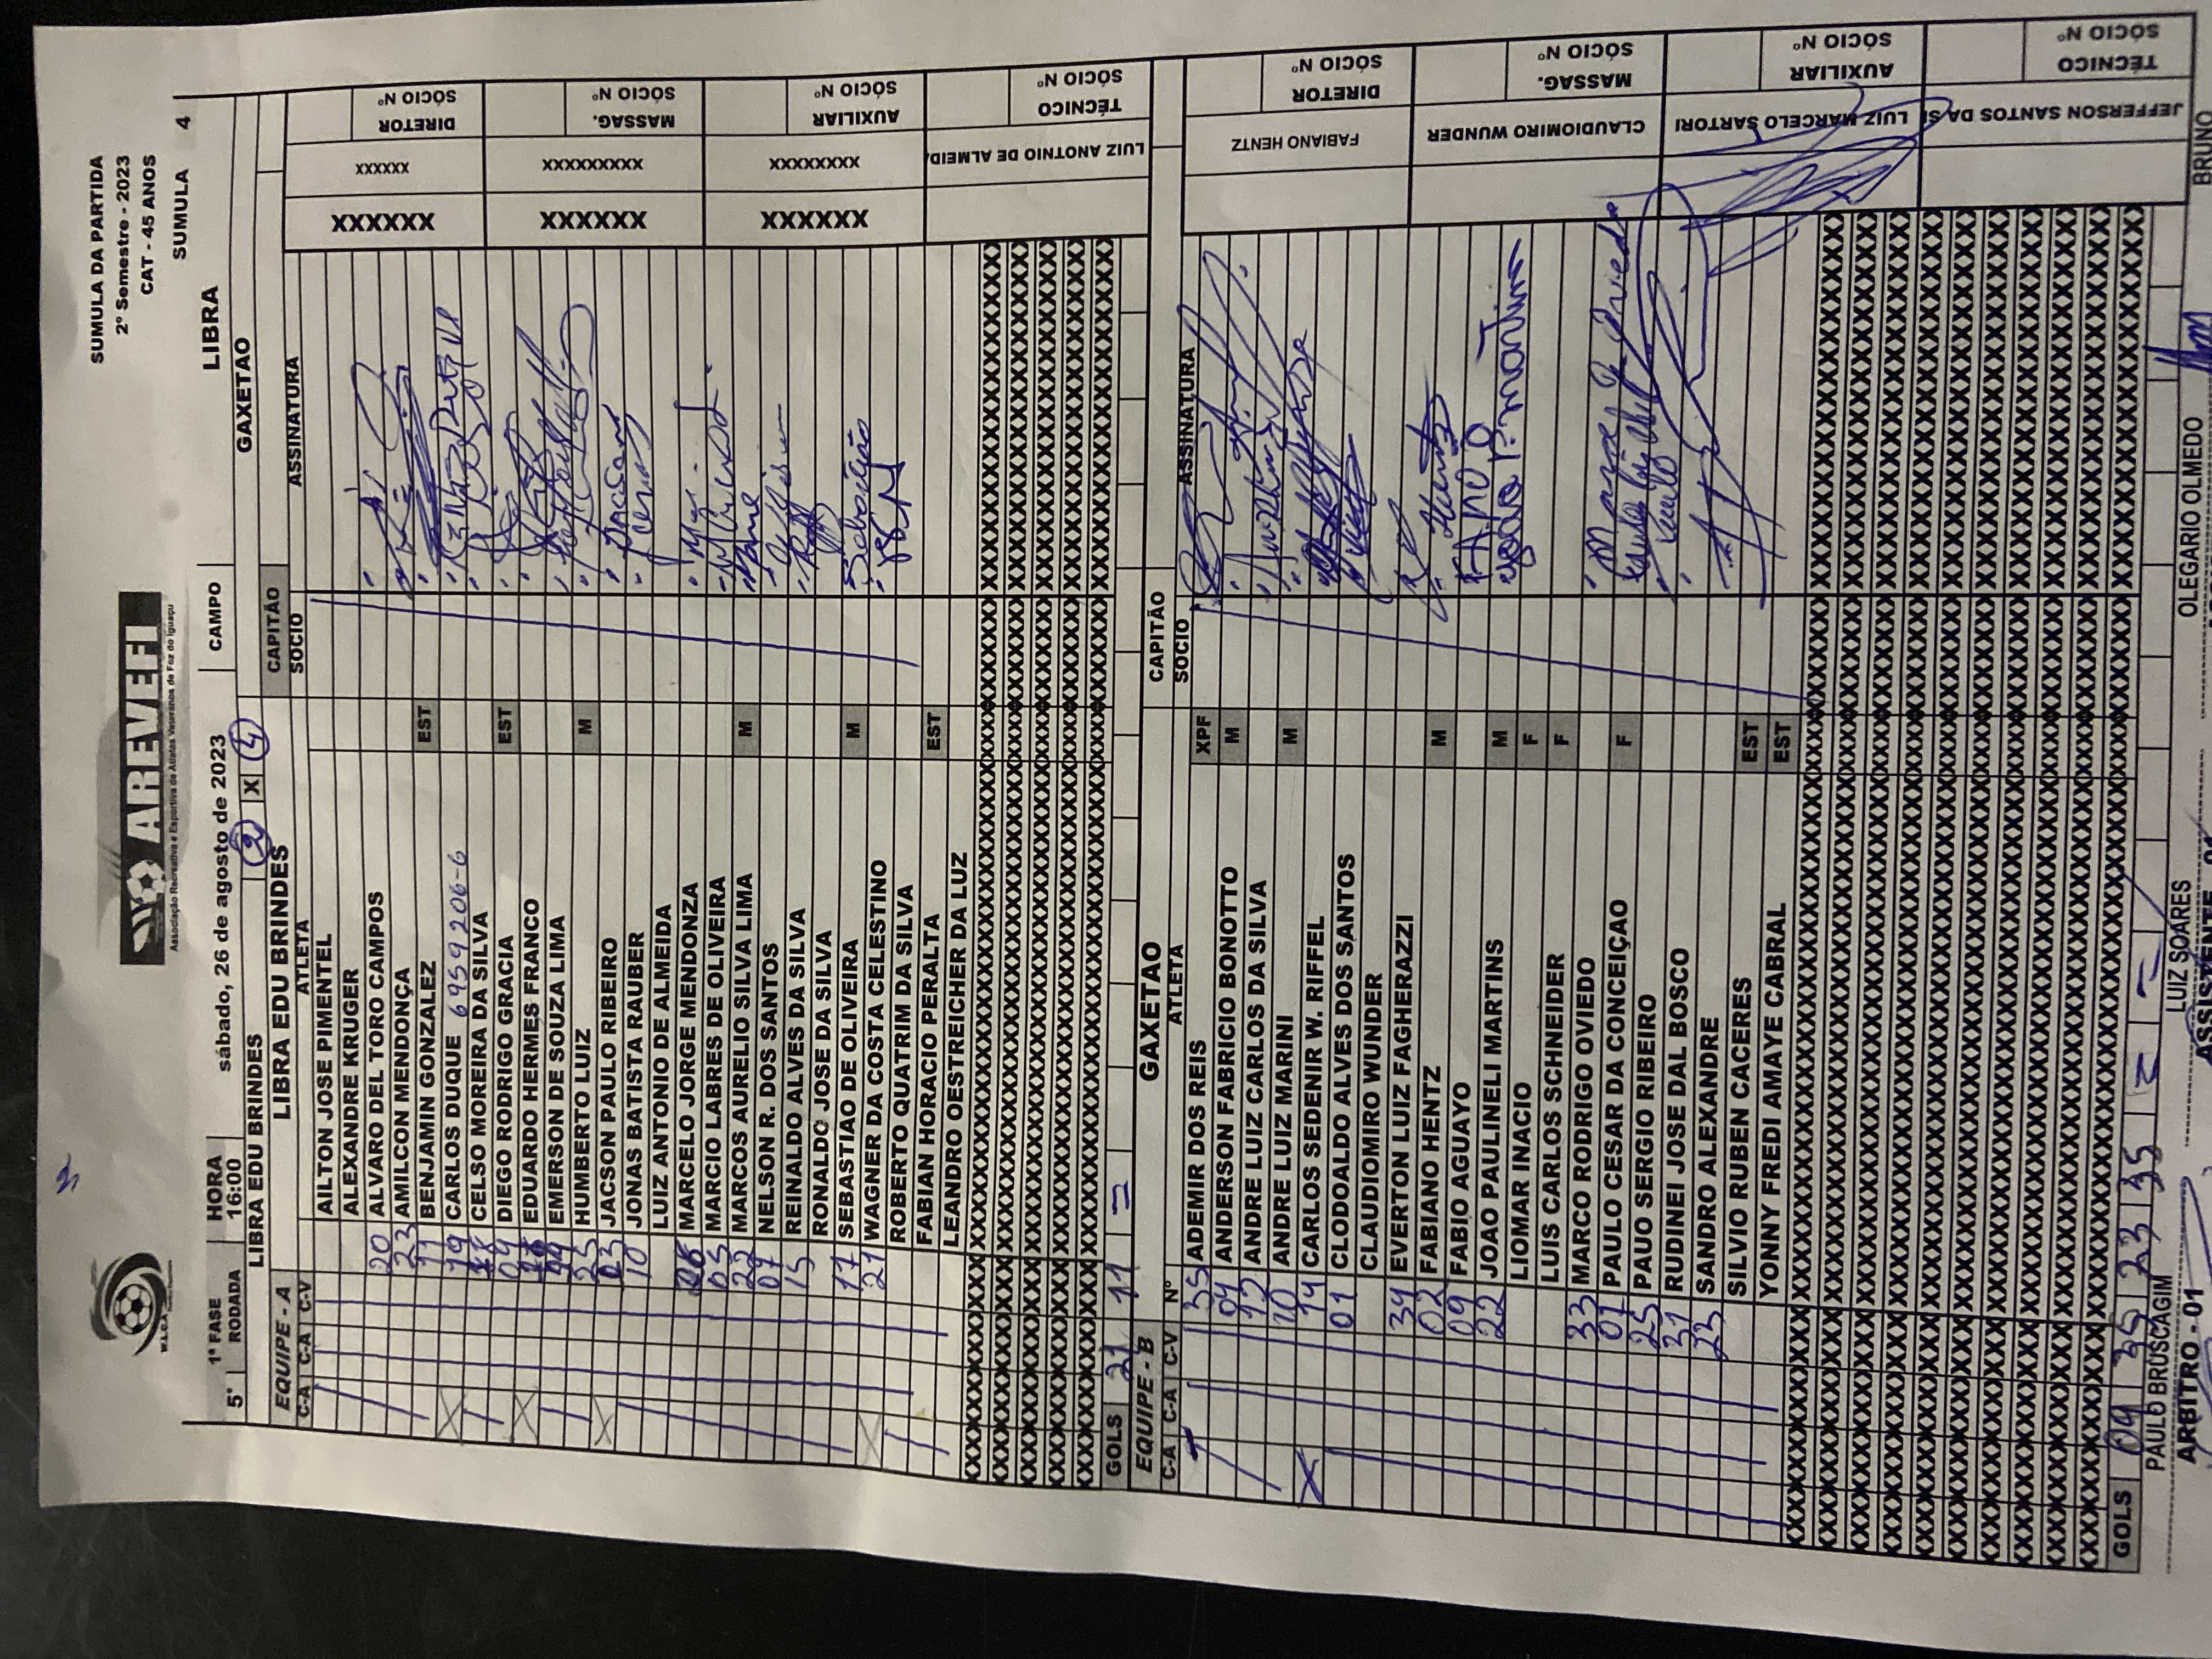 SUMULA DA PARTIDA
2º Semestre - 2023
CAT - 45 ANOS
SUMULA 4
W.L.C.A.
AREVEFI
Associação Recreativa e Esportiva de Atletas Veteranos de Foz do Iguaçu
1ª FASE HORA sábado, 26 de agosto de 2023 CAMPO LIBRA
5ª RODADA 16:00
LIBRA EDU BRINDES 2 X 4 GAXETAO
EQUIPE - A LIBRA EDU BRINDES CAPITÃO
C-A C-A C-V ATLETA SOCIO ASSINATURA
AILTON JOSE PIMENTEL
ALEXANDRE KRUGER
20 ALVARO DEL TORO CAMPOS
23 AMILCON MENDONÇA
11 BENJAMIN GONZALEZ EST
19 CARLOS DUQUE 6959206-6
18 CELSO MOREIRA DA SILVA
09 DIEGO RODRIGO GRACIA EST
EDUARDO HERMES FRANCO
EMERSON DE SOUZA LIMA
25 HUMBERTO LUIZ M
03 JACSON PAULO RIBEIRO
10 JONAS BATISTA RAUBER
LUIZ ANTONIO DE ALMEIDA
06 MARCELO JORGE MENDONZA
05 MARCIO LABRES DE OLIVEIRA
22 MARCOS AURELIO SILVA LIMA M
07 NELSON R. DOS SANTOS
15 REINALDO ALVES DA SILVA
RONALDO JOSE DA SILVA
17 SEBASTIAO DE OLIVEIRA M Sebastião
21 WAGNER DA COSTA CELESTINO
ROBERTO QUATRIM DA SILVA
FABIAN HORACIO PERALTA EST
LEANDRO OESTREICHER DA LUZ
XXXXXX XXXXXX DIRETOR SÓCIO Nº
XXXXXX XXXXXXXXX MASSAG. SÓCIO Nº
XXXXXX XXXXXXXX AUXILIAR SÓCIO Nº
LUIZ ANOTNIO DE ALMEID TÉCNICO SÓCIO Nº
GOLS 21 11 =
EQUIPE - B GAXETAO CAPITÃO
C-A C-A C-V Nº ATLETA SOCIO ASSINATURA
35 ADEMIR DOS REIS XPF
04 ANDERSON FABRICIO BONOTTO M
12 ANDRE LUIZ CARLOS DA SILVA
10 ANDRE LUIZ MARINI M
14 CARLOS SEDENIR W. RIFFEL
01 CLODOALDO ALVES DOS SANTOS
CLAUDIOMIRO WUNDER
34 EVERTON LUIZ FAGHERAZZI
02 FABIANO HENTZ M
09 FABIO AGUAYO
22 JOAO PAULINELI MARTINS M João P. Martins
LIOMAR INACIO F
LUIS CARLOS SCHNEIDER F
33 MARCO RODRIGO OVIEDO
01 PAULO CESAR DA CONCEIÇAO F
25 PAUO SERGIO RIBEIRO
31 RUDINEI JOSE DAL BOSCO
23 SANDRO ALEXANDRE
SILVIO RUBEN CACERES EST
YONNY FREDI AMAYE CABRAL EST
FABIANO HENTZ DIRETOR SÓCIO Nº
CLAUDIOMIRO WUNDER MASSAG. SÓCIO Nº
LUIZ MARCELO SARTORI AUXILIAR SÓCIO Nº
JEFFERSON SANTOS DA SI TÉCNICO SÓCIO Nº
GOLS 09 35 23 35
PAULO BRUSCAGIM LUIZ SOARES OLEGARIO OLMEDO BRUNO
ARBITRO - 01